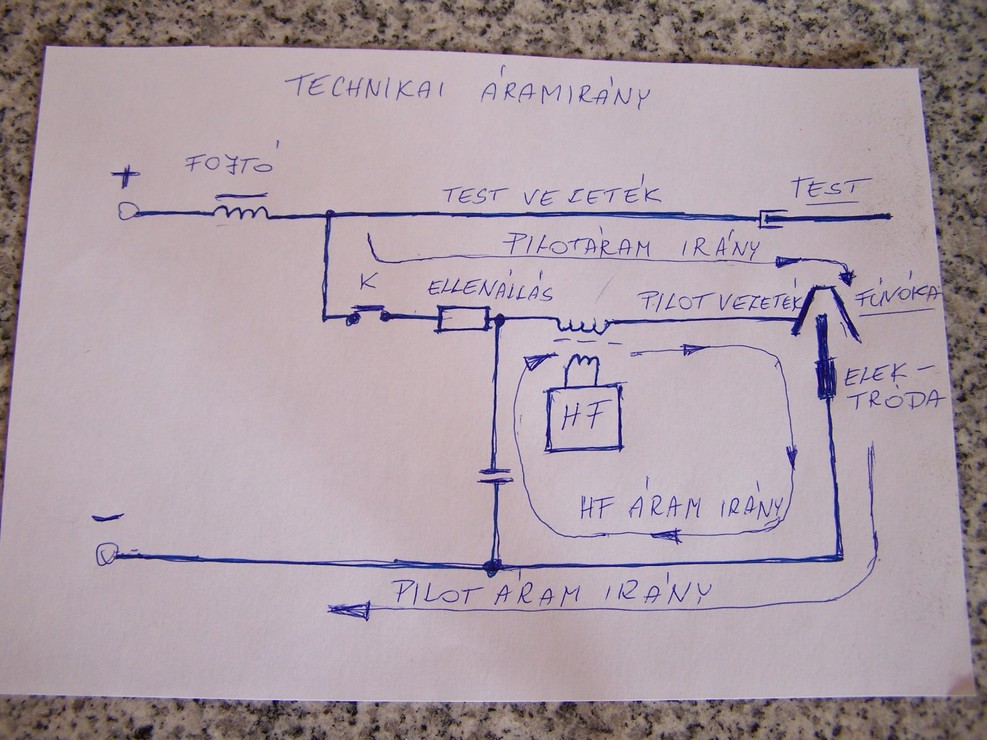 TECHNIKAI ÁRAMIRÁNY
+
FOJTÓ
TEST VEZETÉK
TEST
PILOTÁRAM IRÁNY
K
ELLENÁLLÁS
PILOT VEZETÉK
FÚVÓKA
ELEK-
TRÓDA
HF
HF ÁRAM IRÁNY
-
PILOT ÁRAM IRÁNY